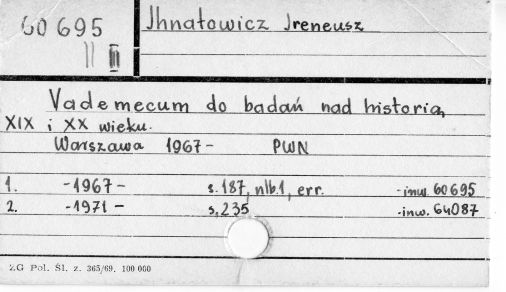 60 695
II III
Ihnatowicz Ireneusz
Vademecum do badań nad historią
XIX i XX wieku.
Warszawa 1967- PWN
1. -1967- s. 187, nlb.1, err. -inw. 60695
2. -1971- s. 235 -inw. 64087
ZG Pol. Śl. z. 365/69. 100 000